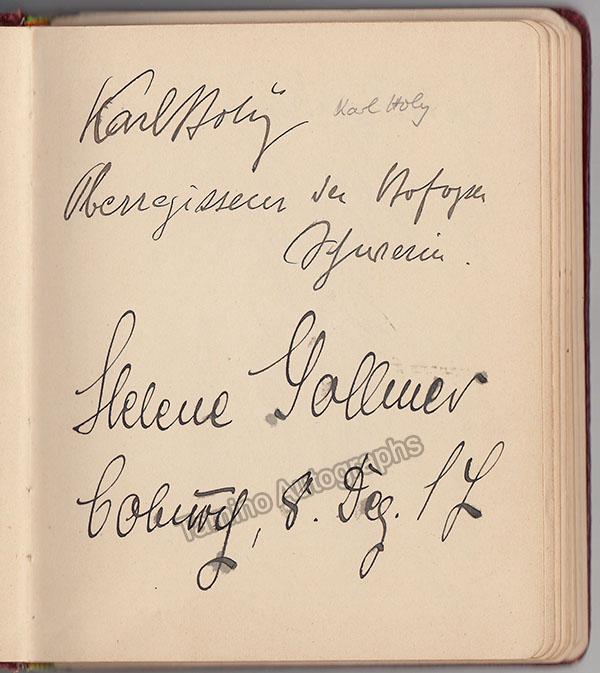 Karl Holy Karl Holy
Oberregisseur der Hofoper
Schwerin.
Helene Gollmer
Coburg, 8. Dez. 17
Tamino Autographs